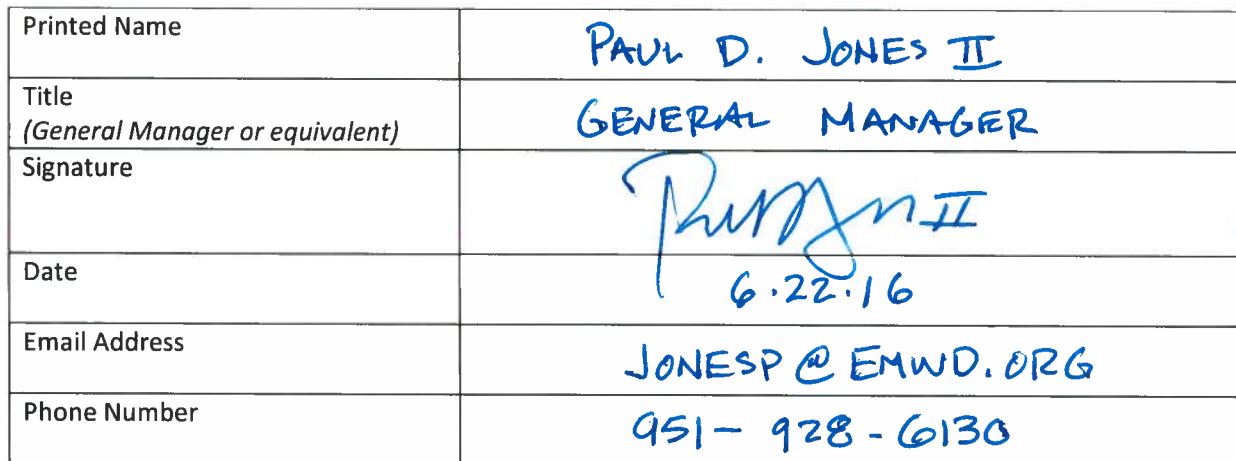 Printed Name
PAUL D. JONES II
Title
(General Manager or equivalent)
GENERAL MANAGER
Signature
II
Date
6.22.16
Email Address
JONESP@EMWD.ORG
Phone Number
951-928-6130